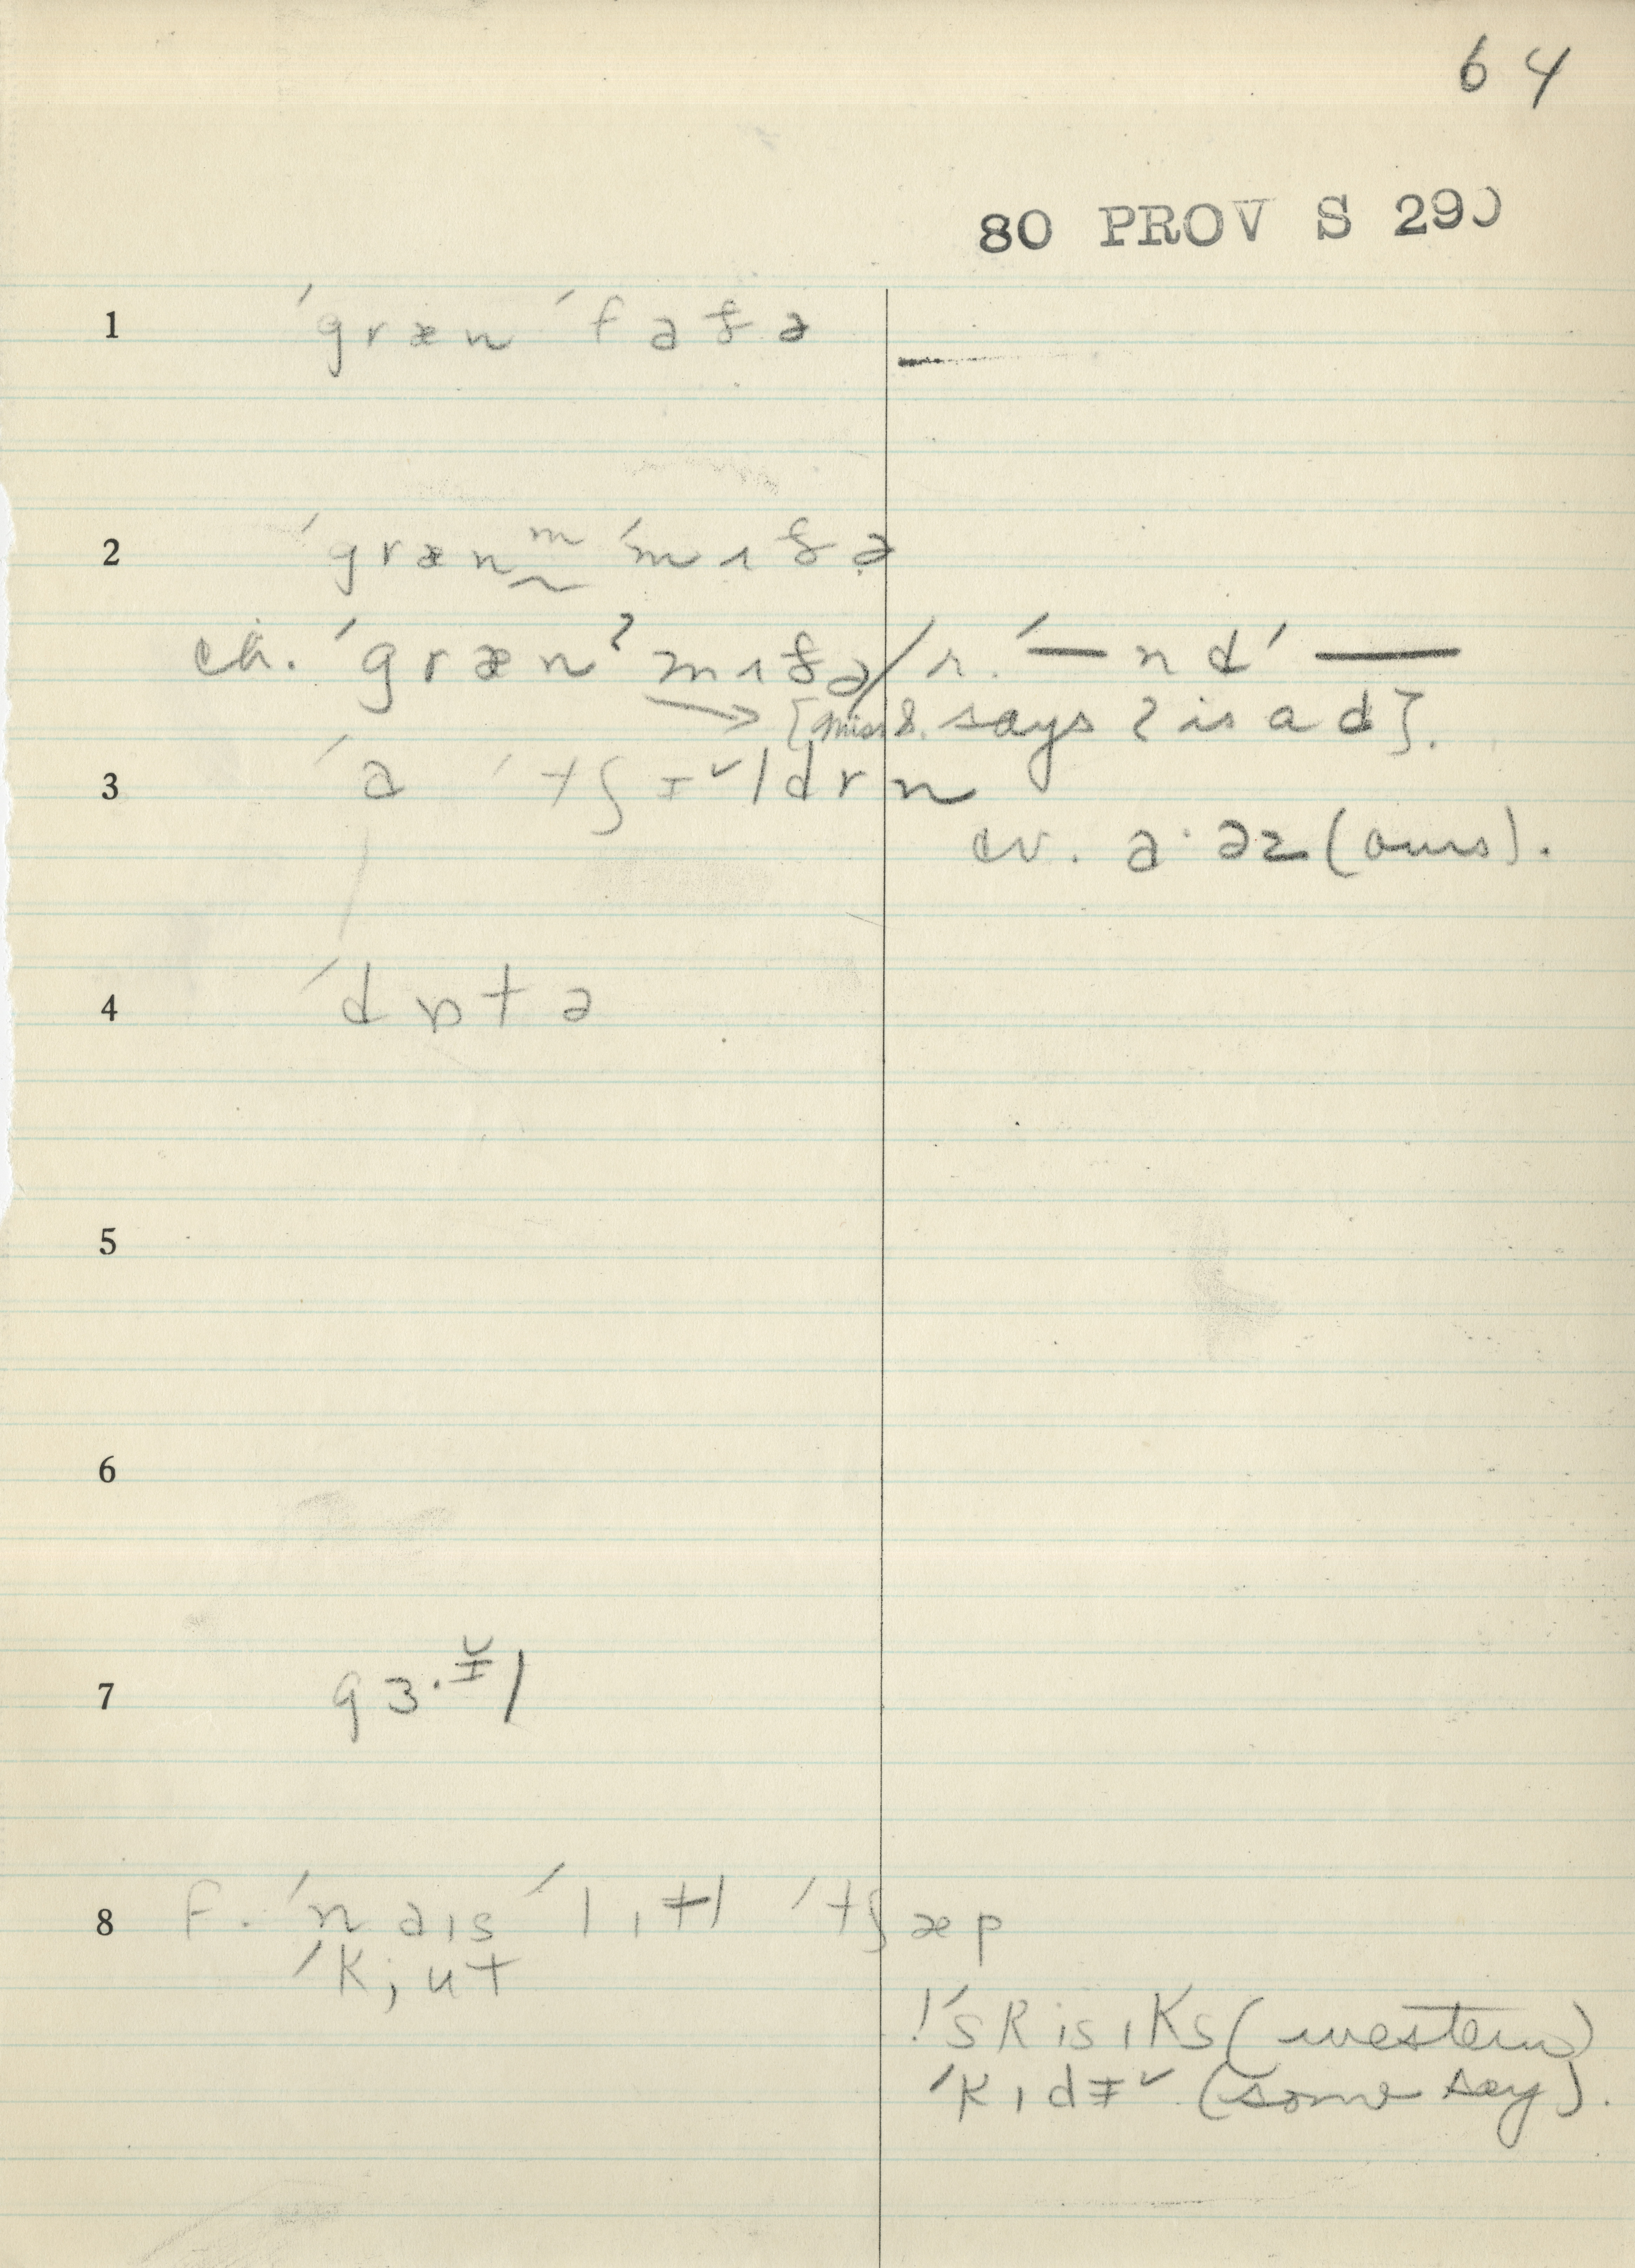 64
80 PROV S 290
1 ˈgræn ˈfaðə
2 ˈgrænᵐ ˈmʌðə
ch. ˈgrænˀ mʌðə / r. ˈ— n dˈ —
→ [Miss S. says ʔ is a d].
3 ˈa ˈtʃɪ˅ldrn
cv. a·əz (ours).
4 ˈdɒtə
5
6
7 gɜ·ɪ̵˅l
8 F. ˈnaɪs ˈlɪtl ˈtʃæp
ˈkjut
!ˈsRisɪks (western)
ˈkɪdɪ̵˅ (some say).